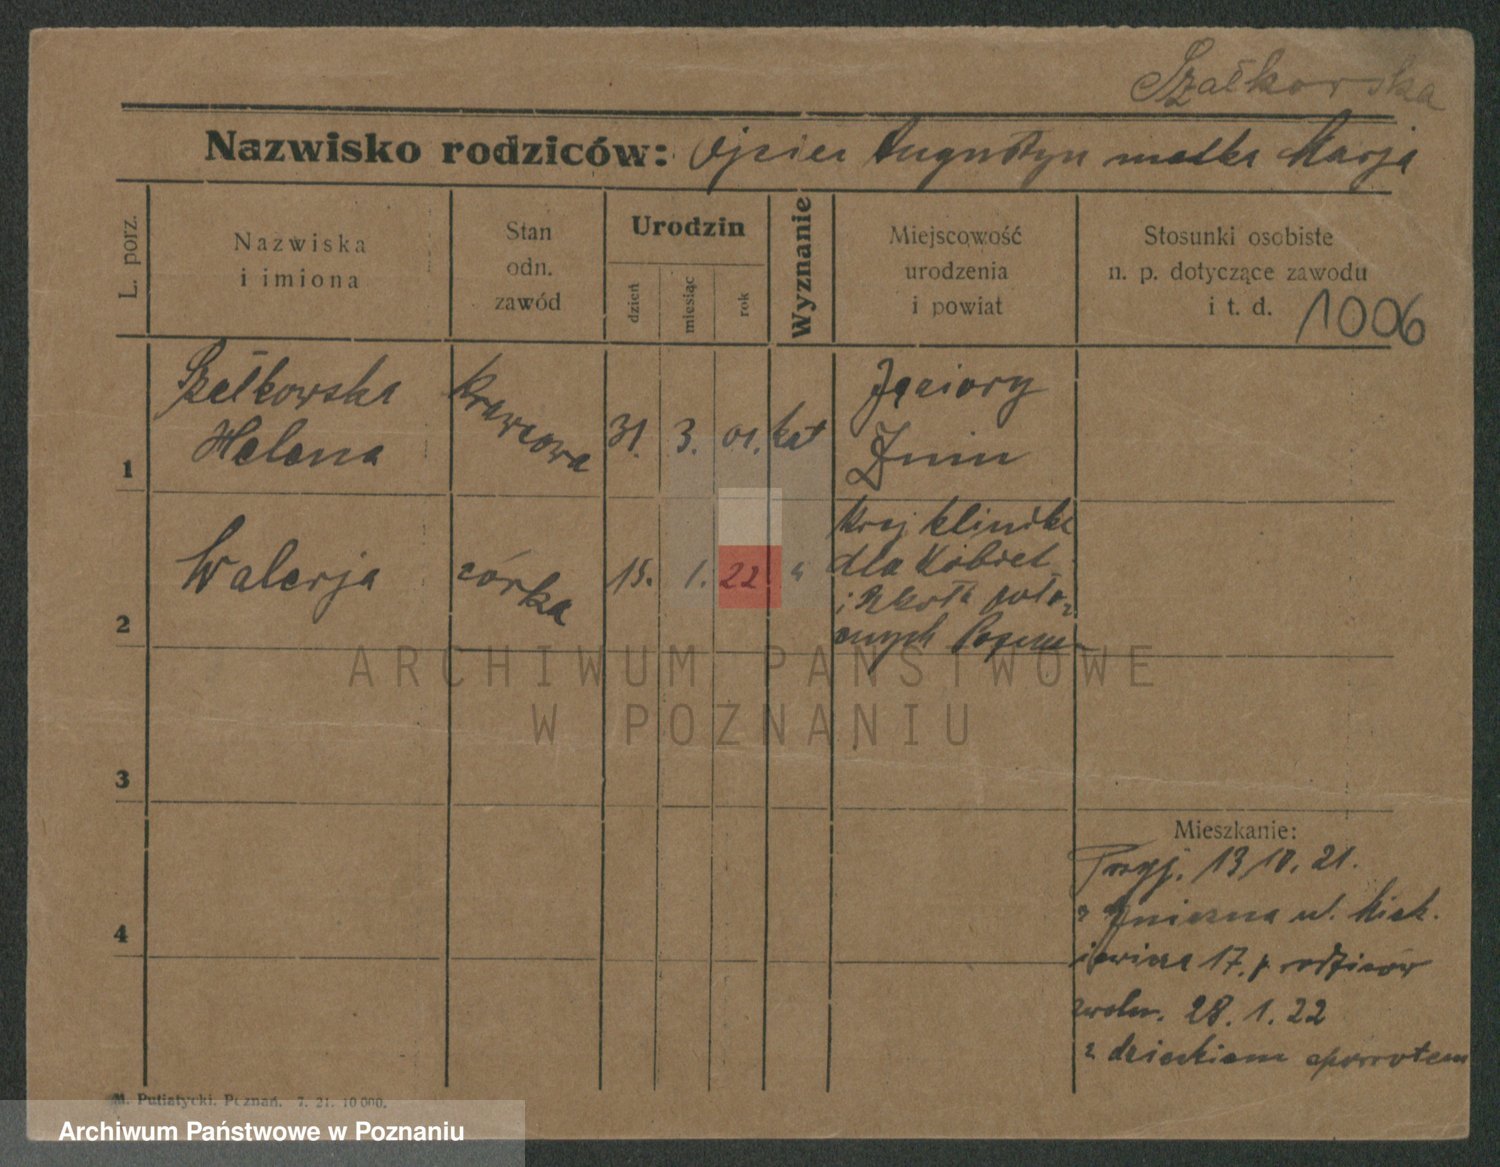 Szałkowska
Nazwisko rodziców: Ojciec Augustyn matka Marja
L. porz.
Nazwiska
i imiona
Stan
odn.
zawód
Urodzin
dzień
miesiąc
rok
Wyznanie
Miejscowość
urodzenia
i powiat
Stosunki osobiste
n. p. dotyczące zawodu
i t. d. 1006
1
Szałkowska
Helena
krawcowa
31. 3. 01. kat
Jeziory
Żnin
2
Walerja
córka
15. 1. 22. "
Kraj klinika
dla Kobiet
i szkoła położ
nych Poznań
3
4
Mieszkanie:
Przyj. 13 10. 21.
z Gniezna ul. Mick
iewicza 17. p rodziców
zwoln. 28. 1. 22
z dzieckiem zpowrotem
M. Putiatycki. Poznań. 7. 21. 10 000.
ARCHIWUM PAŃSTWOWE
W POZNANIU
Archiwum Państwowe w Poznaniu